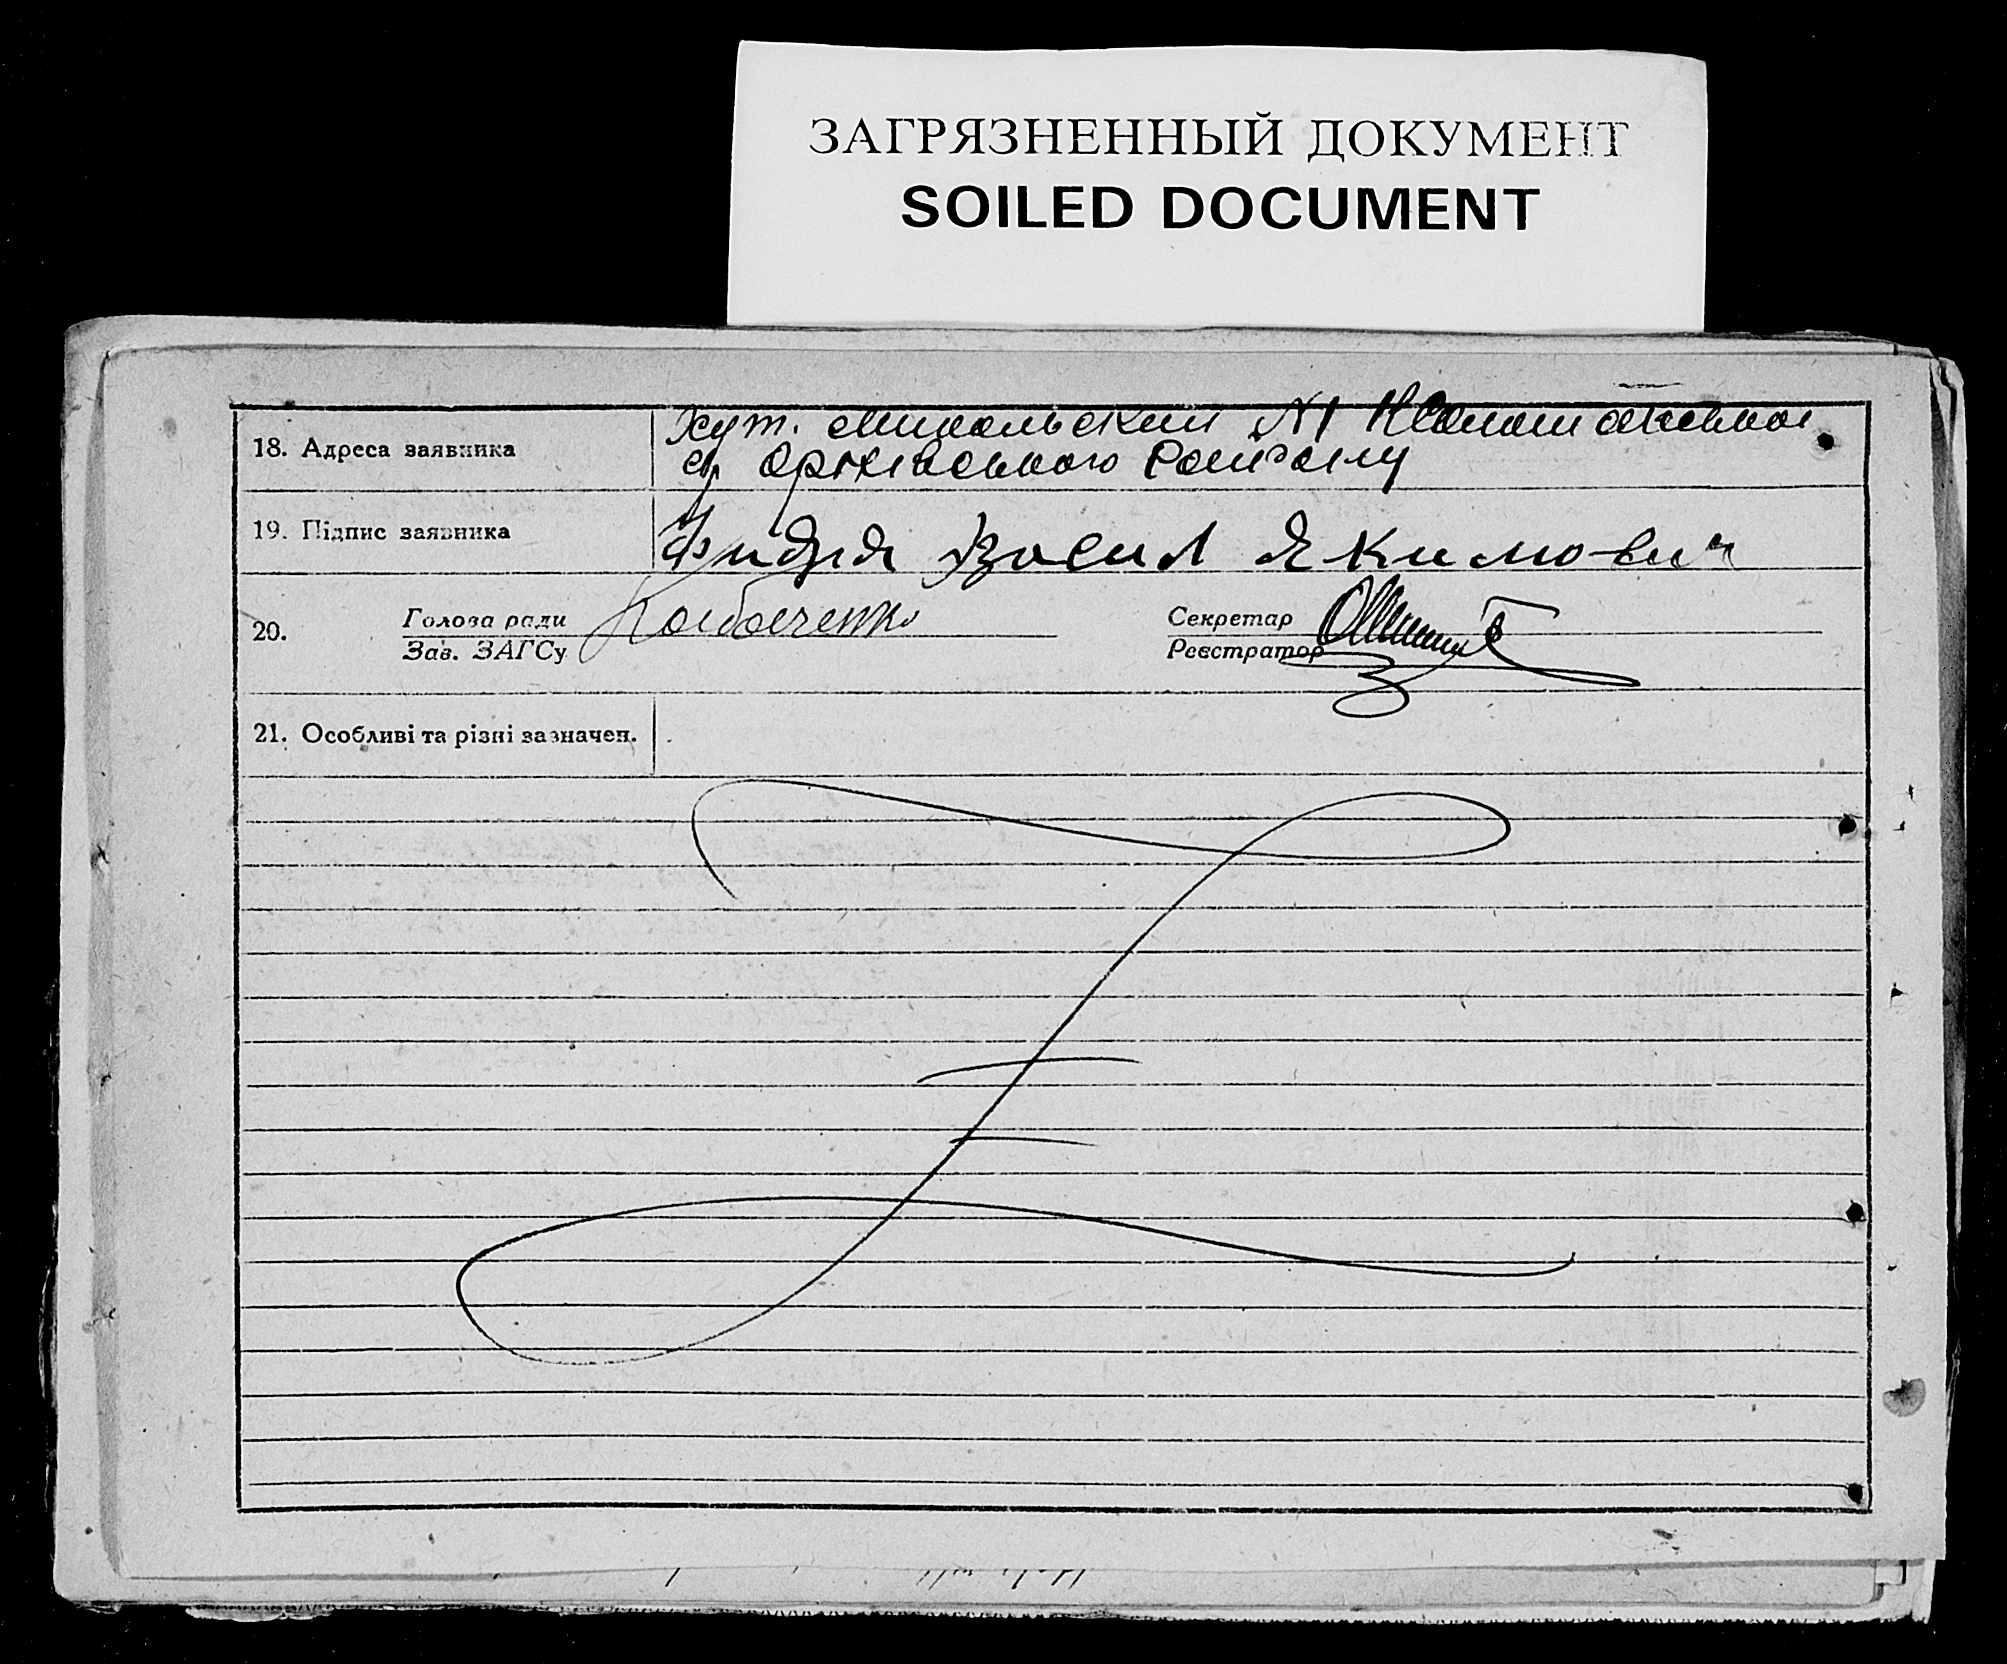 ЗАГРЯЗНЕННЫЙ ДОКУМЕНТ
SOILED DOCUMENT
18. Адреса заявника
Хут. Микольский №1
Оріхівського Району
19. Підпис заявника
Васил Якимович
20.
Голова ради
Зав. ЗАГСу
Секретар
Реєстратор
21. Особливі та різні зазначен.